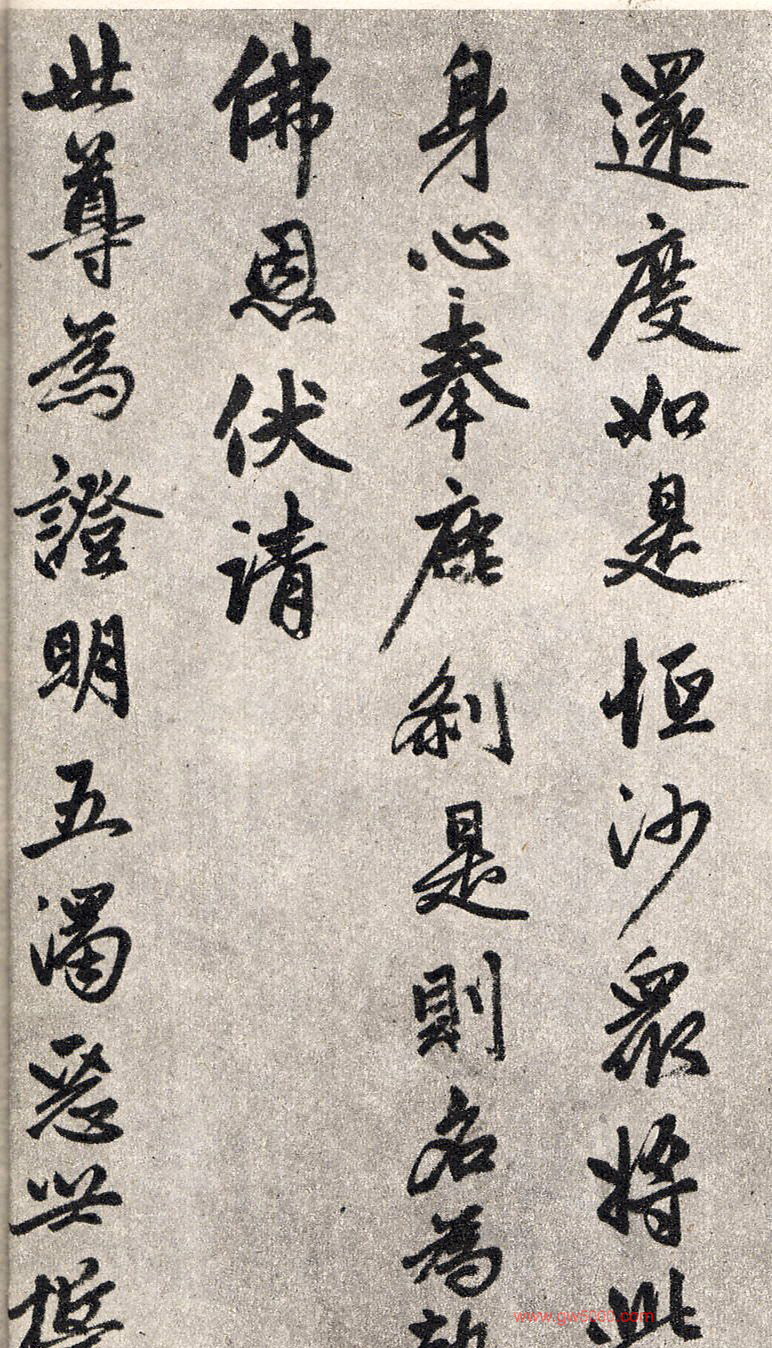 還度如是恒沙衆將此
身心奉塵刹是則名為報
佛恩伏請
世尊為證明五濁惡世
www.gw5000.com